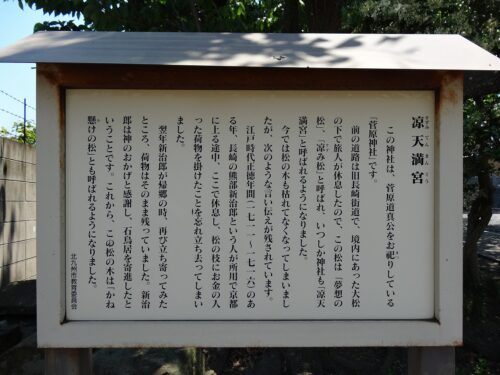 凉天満宮
すずみ てん まん ぐう
この神社は、菅原道真公をお祀りしている
『菅原神社』です。
前の道路は旧長崎街道で、境内にあった大松
の下で旅人が休息したので、この松は「夢想の
松」、「凉み松」と呼ばれ、いつしか神社も「凉天
満宮」と呼ばれるようになりました。
今では松の木も枯れてなくなってしまいまし
たが、次のような言い伝えが残されています。
江戸時代正徳年間(一七一一〜一七一六)のあ
る年、長崎の熊部新治郎という人が所用で京都
に上る途中、ここで休息し、松の枝にお金の入
った荷物を掛けたことを忘れ立ち去ってしまい
ました。
翌年新治郎が帰郷の時、再び立ち寄ってみた
ところ、荷物はそのまま残っていました。新治
郎は神のおかげと感謝し、石鳥居を寄進したと
いうことです。これから、この松の木は「かね
懸けの松」とも呼ばれるようになりました。
北九州市教育委員会